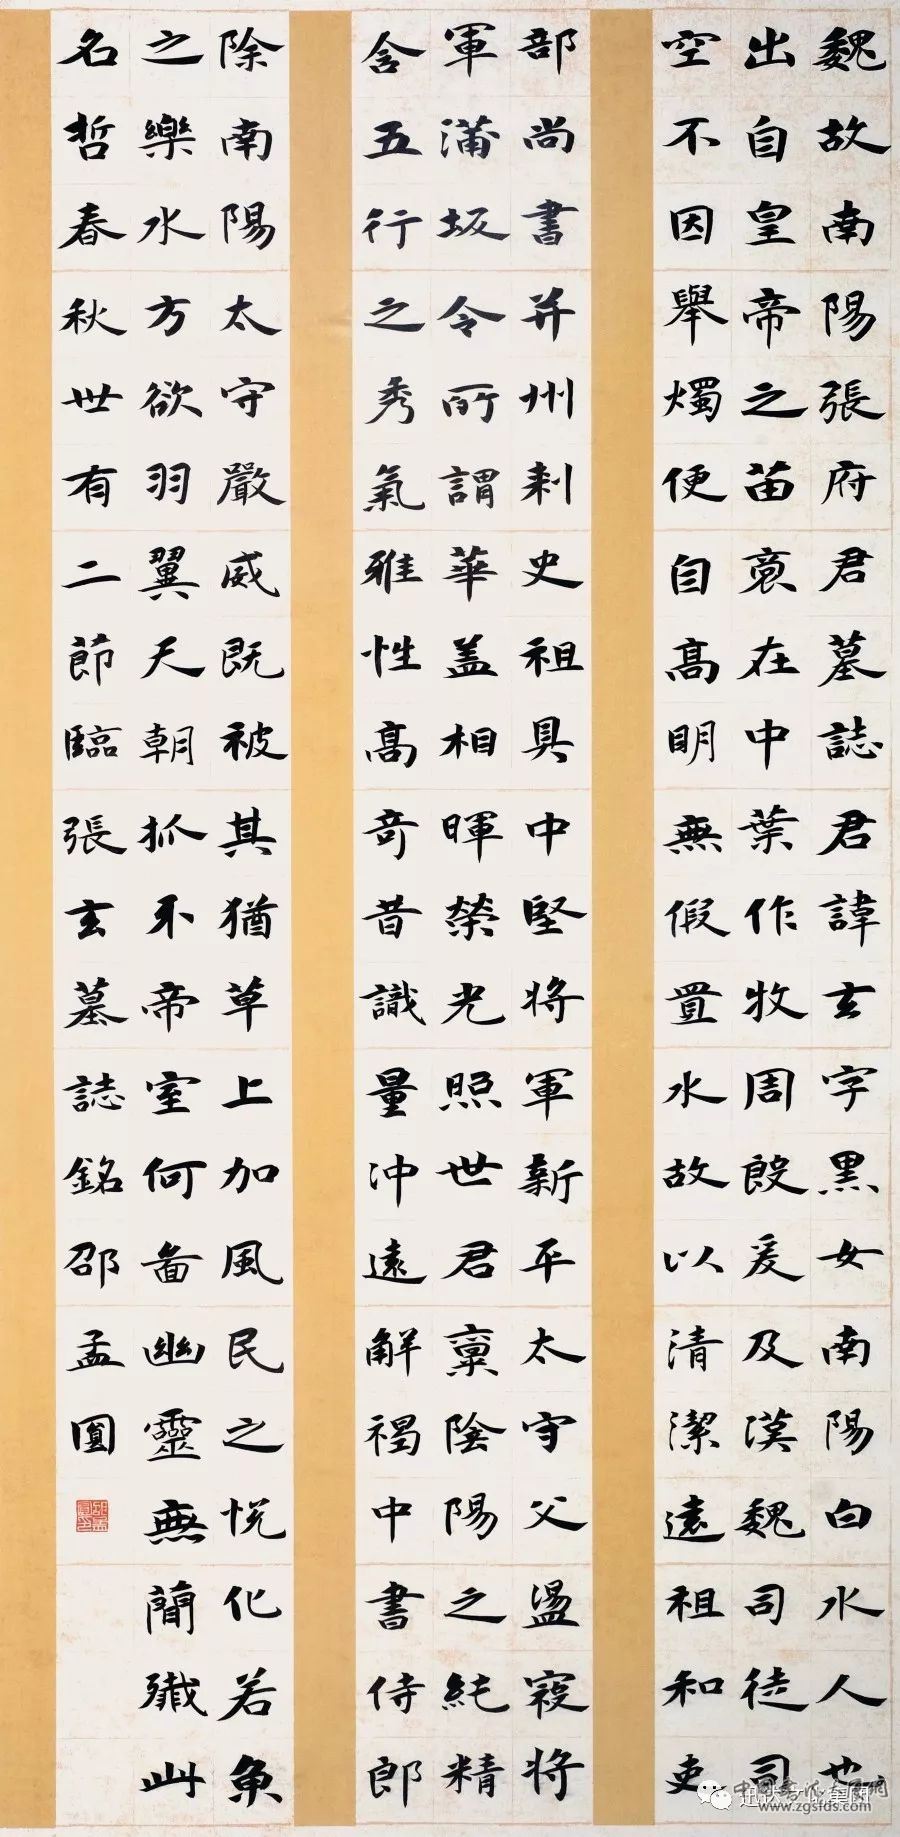 魏故南陽張府君墓誌君諱玄字黑女南陽白水人也
出自皇帝之苗裔在中葉作牧周殷爰及漢魏司徒司
空不因舉燭便自高明無假置水故以清潔遠祖和吏
部尚書并州刺史祖具中堅將軍新平太守父盪寇將
軍蒲坂令所謂華蓋相暉榮光照世君稟陰陽之純精
含五行之秀氣雅性高奇昔識量沖遠解褐中書侍郎
除南陽太守嚴威既被其猶草上加風民之悅化若魚
之樂水方欲羽翼天朝抓不帝室何圖幽靈無簡殲此
名哲春秋世有二節臨張玄墓誌銘邵孟圓
www.zgsfds.com